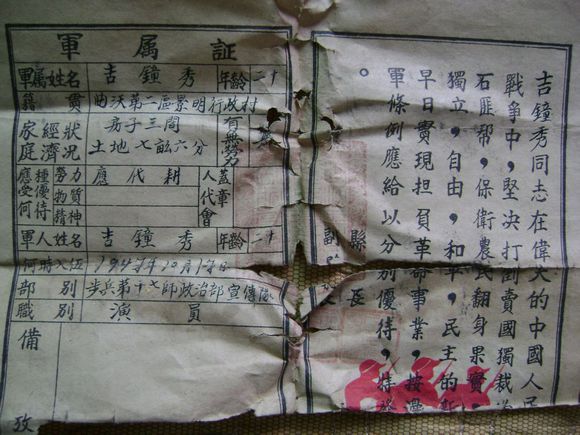 軍属証
軍属姓名 吉鐘秀 年齡 二十
籍貫 曲沃第二區景明行政村
家庭經濟狀况 房子三間 土地七畝六分
應受何種優待 勞力 應代耕
物質
精神
人代會蓋章
軍人姓名 吉鐘秀 年齡 二十
何時入伍 1947年10月17日
部别 步兵第十七師政治部宣傳隊
職别 演員
備攷
吉鐘秀同志在偉大的中國人民
戰争中，堅决打倒賣國獨裁
石匪帮，保衛農民翻身果實，
獨立，自由，和平，民主的
早日實現担負革命事業，按
軍條例應給以分别優待，
。
縣長
副